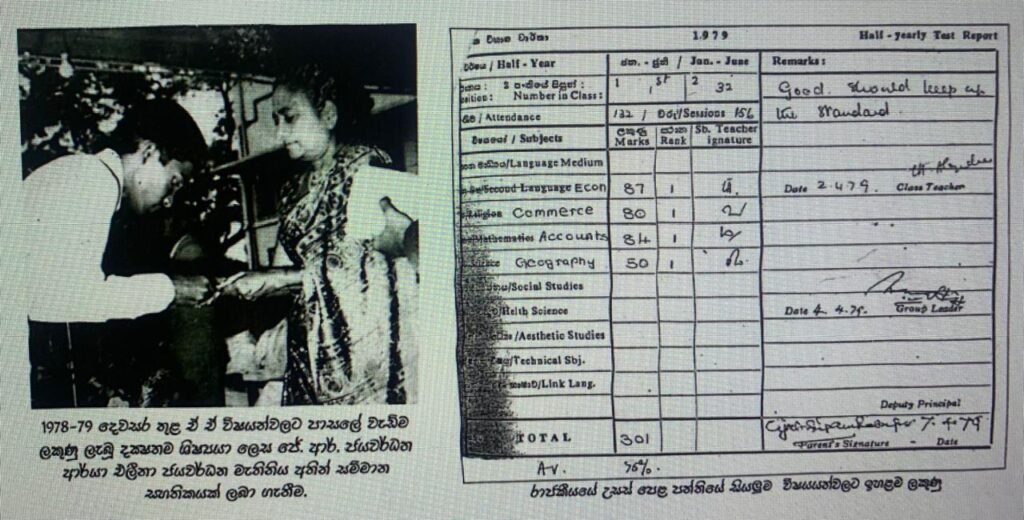 1978-79 දෙවසර තුළ ඒ ඒ විෂයන්වලට පාසලේ වැඩිම
ලකුණු ලැබූ දක්ෂතම ශිෂ්‍යයා ලෙස ජේ. ආර්. ජයවර්ධන
ආර්යා එලීනා ජයවර්ධන මැතිනිය අතින් සම්මාන
සහතිකයක් ලබා ගැනීම.
වාර්තාව 1979 Half-yearly Test Report
/ Half-Year ජන. - ජූනි / Jan. - June Remarks:
Number in Class: 1 1st 2 32 Good. Should keep up
/ Attendance 132 / Sessions 156 the Standard.
/ Subjects ලකුණු Marks Rank Sb. Teacher
/Language Medium
/Second Language Econ 87 1 Date 2.4.79. Class Teacher
Commerce 80 1
/Mathematics Accounts 84 1
Geography 50 1
/Social Studies
/Helth Science Date 4.4.79. Group Leader
/Aesthetic Studies
/Technical Sbj.
/Link Lang.
Deputy Principal
TOTAL 301 7.4.79
Parent's Signature - Date
Av. 75%.
රාජකීයයේ උසස් පෙළ පන්තියේ සියලුම විෂයයන්වලට ඉහළම ලකුණු